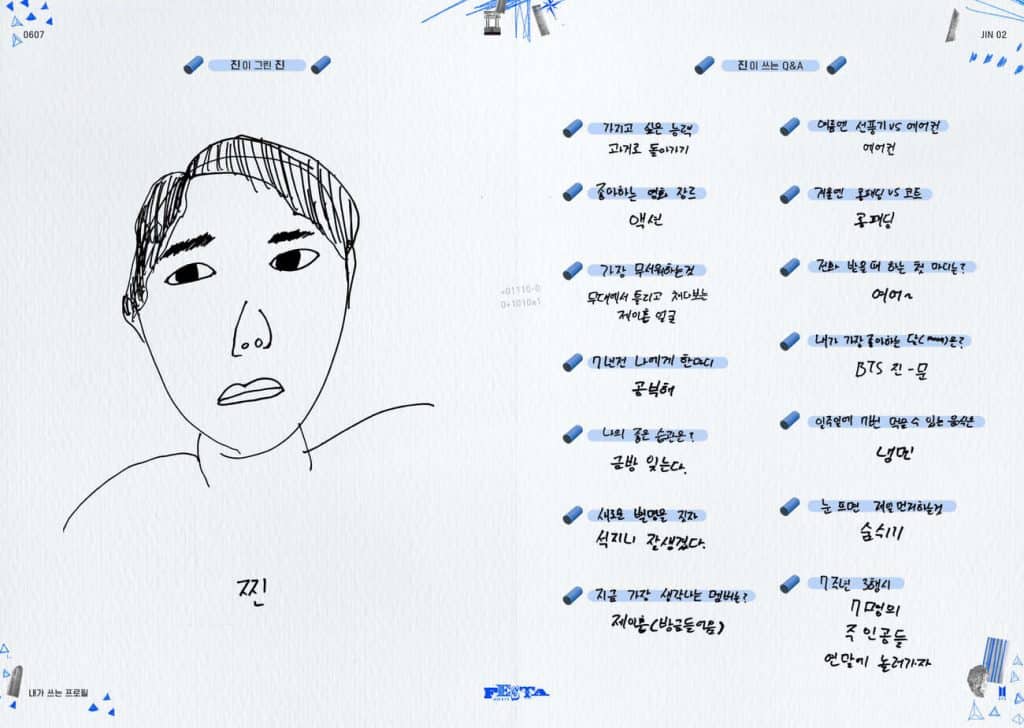 0607
JIN 02
진이 그린 진
찐
내가 쓰는 프로필
진이 쓰는 Q&A
가지고 싶은 능력
과거로 돌아가기
좋아하는 영화 장르
액션
가장 무서워하는것
무대에서 틀리고 쳐다보는
제이홉 얼굴
7년전 나에게 한마디
공부해
나의 좋은 습관은?
금방 잊는다.
새로운 별명을 짓자
석지니 잘생겼다.
지금 가장 생각나는 멤버는?
제이홉(방금들어옴)
여름엔 선풍기 vs 에어컨
에어컨
겨울엔 롱패딩 vs 코트
롱패딩
전화 받을때 하는 첫 마디는?
여어~
내가 가장 좋아하는 은?
BTS 진-문
일주일에 7번 먹을 수 있는 음식은
냉면
눈 뜨면 제일먼저하는것
숨쉬기
7주년 3행시
7명의
주인공들
연말에 놀러가자
+01110-0
0+1010a1
FESTA